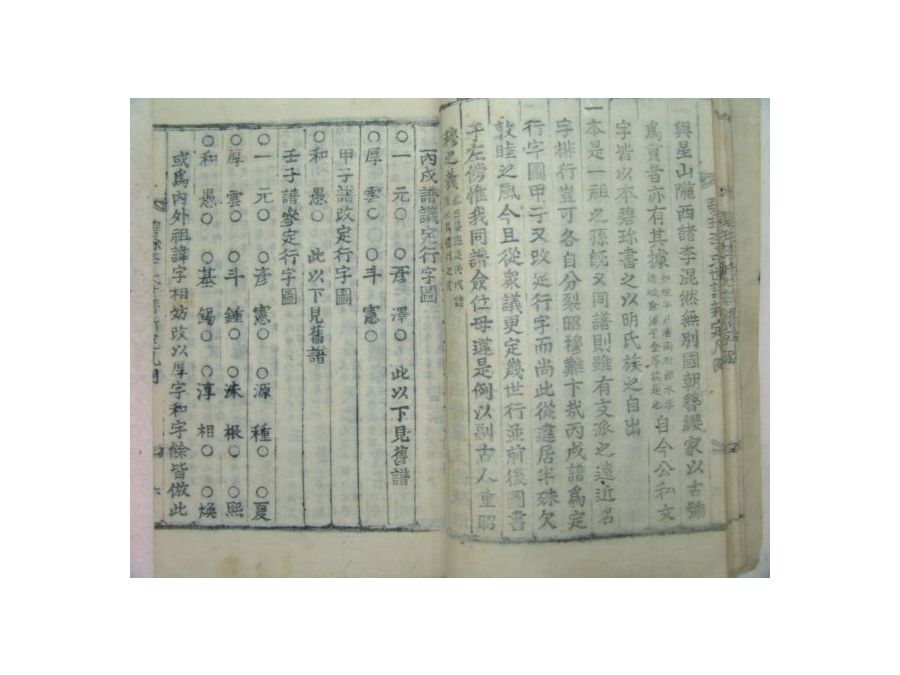 與星山隴西諸李混然無別國朝簪纓家以古號
為貫者亦有其據
自今公私文
字皆以本碧珍書之以明氏族之自出
一本是一祖之孫旣又同譜則雖有支派之遠近名
字排行豈可各自分裂昭穆難卞哉丙戌譜爲定
行字圖甲子又改定行字而尚此從違居半殊欠
敦睦之風今且從衆議更定幾世行並前後圖書
于左傍惟我同譜僉位毋違是例以副古人重昭
穆之義
丙戌譜議定行字圖
○一 元○ ○彥 澤○ 此以下見舊譜
○厚 雲○ ○斗 憲○
甲子譜改定行字圖
○和 愚○ 此以下見舊譜
壬子譜參定行字圖
○一 元○ ○彥 憲○ ○源 種○ ○夏
○厚 雲○ ○斗 鍾○ ○洙 根○ ○熙
○和 愚○ ○基 錫○ ○淳 相○ ○煥
或爲內外祖諱字相妨改以厚字和字餘皆倣此